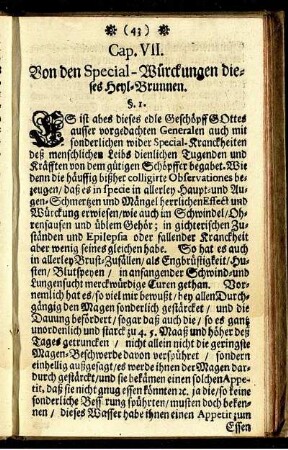 ❋ (43) ❋
Cap. VII.
Von den Special-Würckungen die-
ses Heyl-Brunnen.
§. 1.
ES ist aber dieses edle Geschöpff GOttes
ausser vorgedachten Generalen auch mit
sonderlichen wider Special-Kranckheiten
deß menschlichen Leibs dienlichen Tugenden und
Kräfften von dem gütigen Schöpffer begabet. Wie
denn die häuffig bißher colligirte Observationes be-
zeugen / daß es in specie in allerley Haupt- und Au-
gen-Schmertzen und Mängel herrlichen Effect und
Würckung erwiesen / wie auch im Schwindel / Oh-
rensausen und üblem Gehör; in gichterischen Zu-
ständen und Epilepsia oder fallender Kranckheit
aber wenig seines gleichen habe. So hat es auch
in allerley Brust-Zufällen / als Engbrüstigkeit / Hu-
sten / Blutspeyen / in anfangender Schwind- und
Lungensucht merckwürdige Curen gethan. Vor-
nemlich hat es / so viel mir bewust / bey allen Durch-
gängig den Magen sonderlich gestärcket / und die
Dauung befördert / sogar daß auch die / so es gantz
unordenlich und starck zu 4. 5. Maaß und höher deß
Tages getruncken / nicht allein nicht die geringste
Magen-Beschwerde davon verspühret / sondern
einhellig außgesagt / es werde ihnen der Magen dar-
durch gestärckt / und sie bekämen einen solchen Appe-
tit, daß sie nicht gnug essen könnten ꝛc. ja die / so keine
sonderliche Bess'rung spührten / musten doch beken-
nen / dieses Wasser habe ihnen einen Appetit zum
Essen